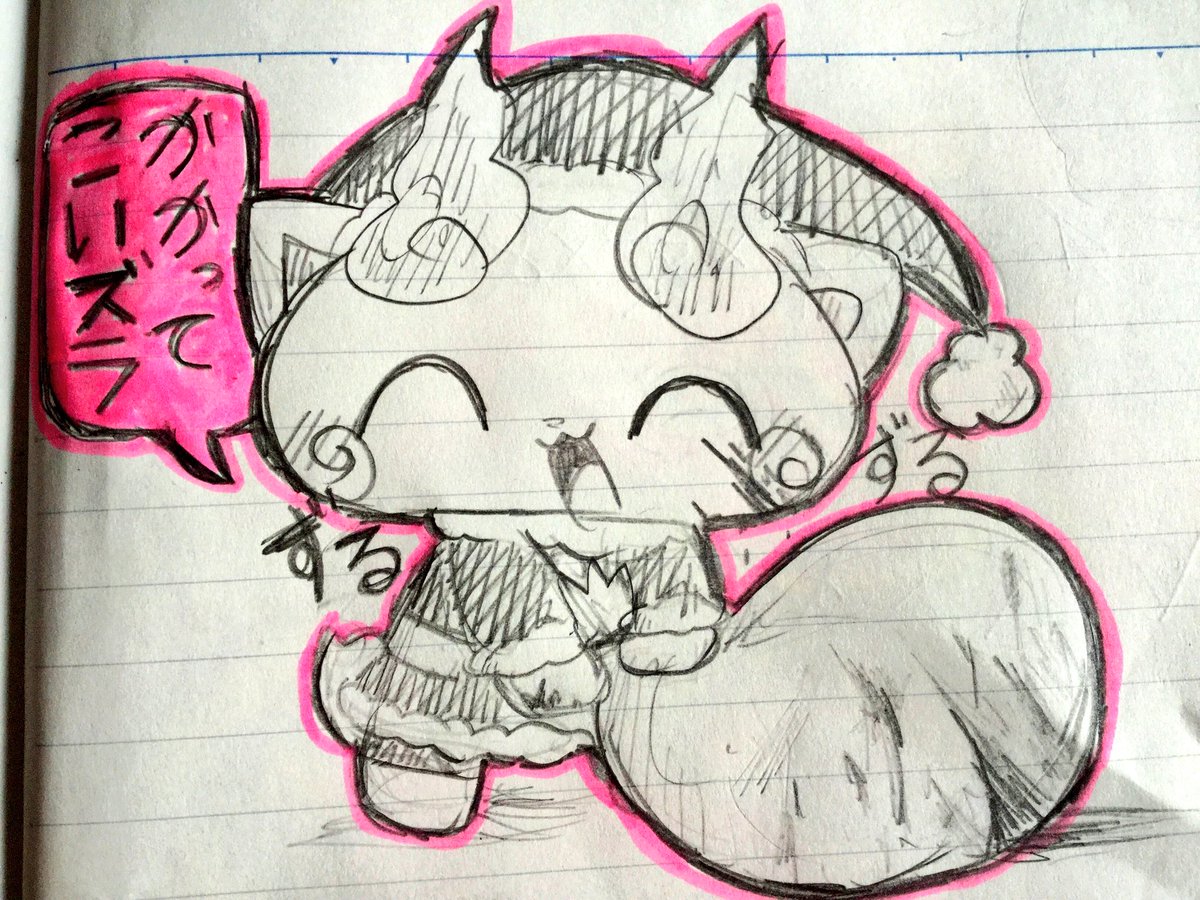 かかって
こいズラ
ずる
ずる